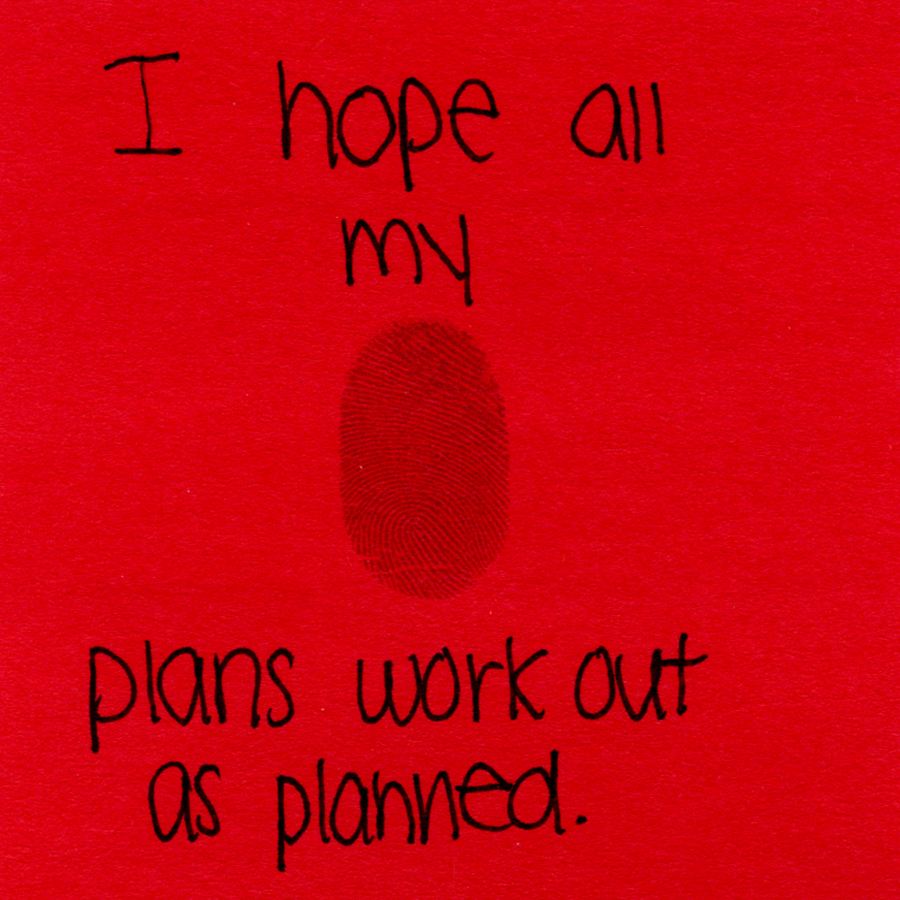 I hope all
my
plans work out
as planned.